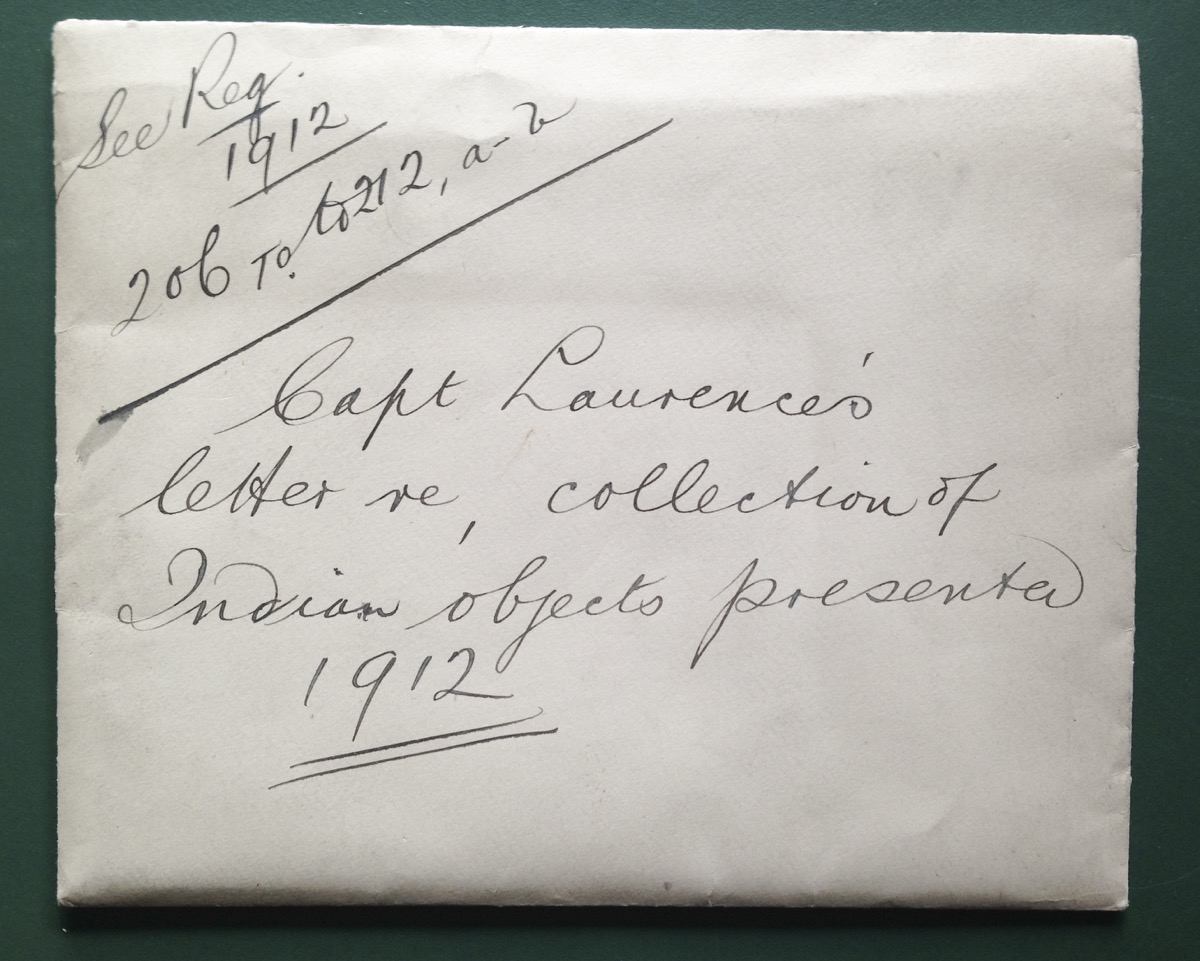 See Reg.
1912
206 To to 212, a-b
Capt Laurence's
letter re, collection of
Indian objects presented
1912